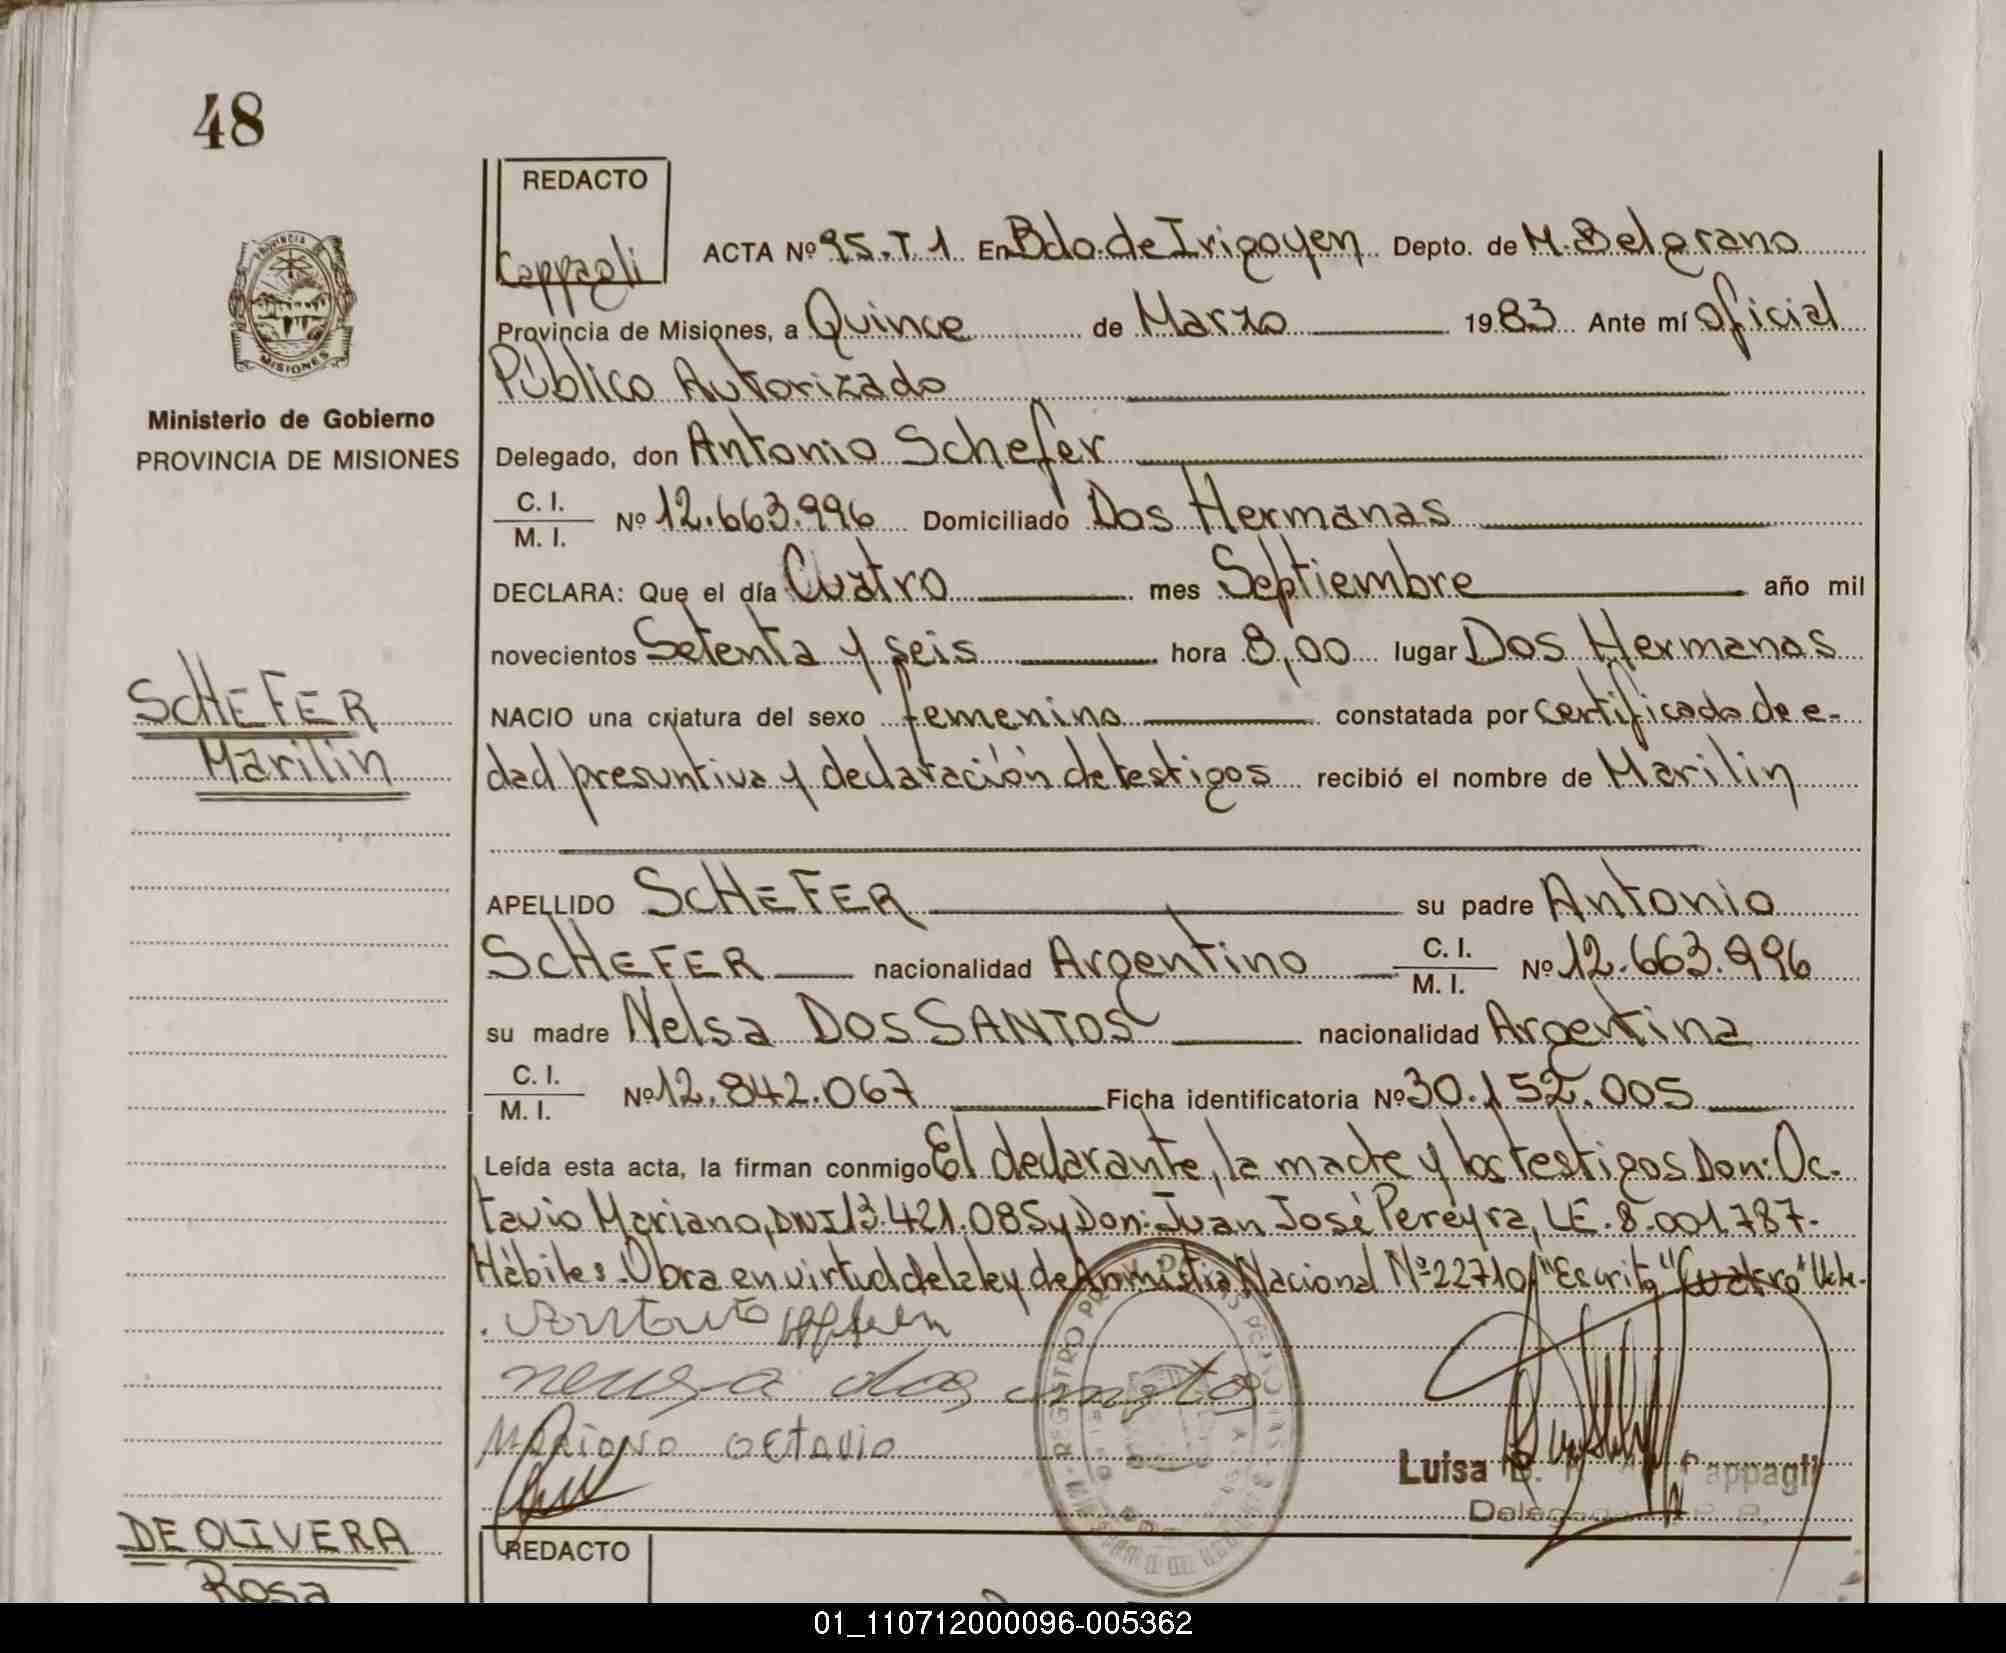 48
REDACTO
Cappagli
ACTA Nº 95.T.1 En Bdo. de Irigoyen Depto. de M. Belgrano
Provincia de Misiones, a Quince de Marzo 1983 Ante mí Oficial
Público Autorizado
PROVINCIA DE
MISIONES
Ministerio de Gobierno
PROVINCIA DE MISIONES
Delegado, don Antonio Schefer
C. I.
M. I. Nº 12.663.996 Domiciliado Dos Hermanas
DECLARA: Que el día Cuatro mes Septiembre año mil
novecientos Setenta y seis hora 8,00 lugar Dos Hermanas
SCHEFER
Marilin
NACIO una criatura del sexo femenino constatada por certificado de e-
dad presuntiva y declaración de testigos recibió el nombre de Marilin
APELLIDO SCHEFER su padre Antonio
SCHEFER nacionalidad Argentino C. I. M. I. Nº 12.663.996
su madre Nelsa DOS SANTOS nacionalidad Argentina
C. I.
M. I. Nº 12.842.067 Ficha identificatoria Nº 30.152.005
Leída esta acta, la firman conmigo El declarante, la madre y los testigos Don: Oc-
tavio Mariano, DNI 13.421.085 y Don: Juan José Pereyra, LE. 8.001.787.
Hábiles. Obra en virtud de la ley de Amnistia Nacional Nº 22710/ "Escrito" "Cuatro" Vale.
neusa dos
MARIANO OCTAVIO
Luisa B. Cappagli
DE OLIVERA
Rosa
REDACTO
01_110712000096-005362